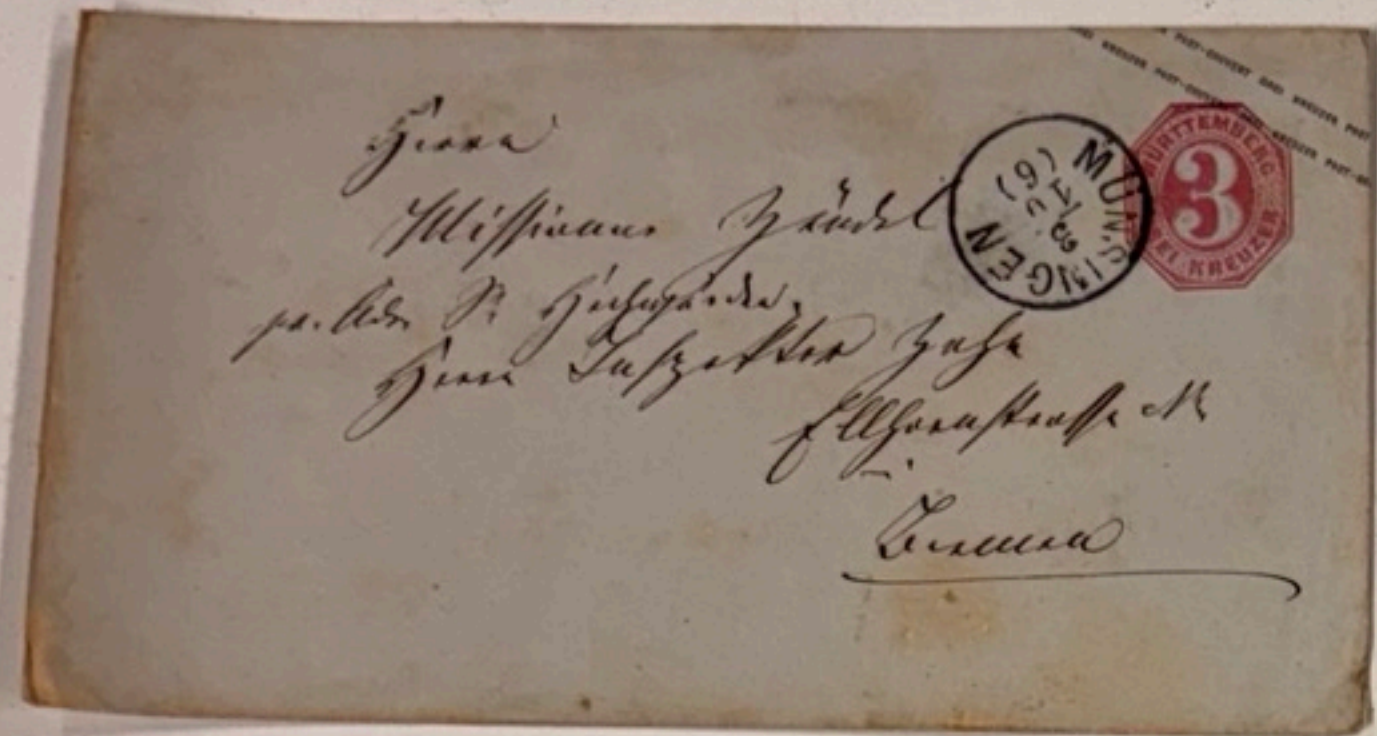 POST-COUVERT DREI KREUZER POST
KREUZER POST-COUVERT DREI KREUZER POST-
WÜRTTEMBERG
3
DREI KREUZER
MÜNSINGEN
Herrn
Missionar Zündel
pr. Adr. Sr. Hochwürden,
Herrn Inspektor Zahn
Ellhornstrasse
Bremen